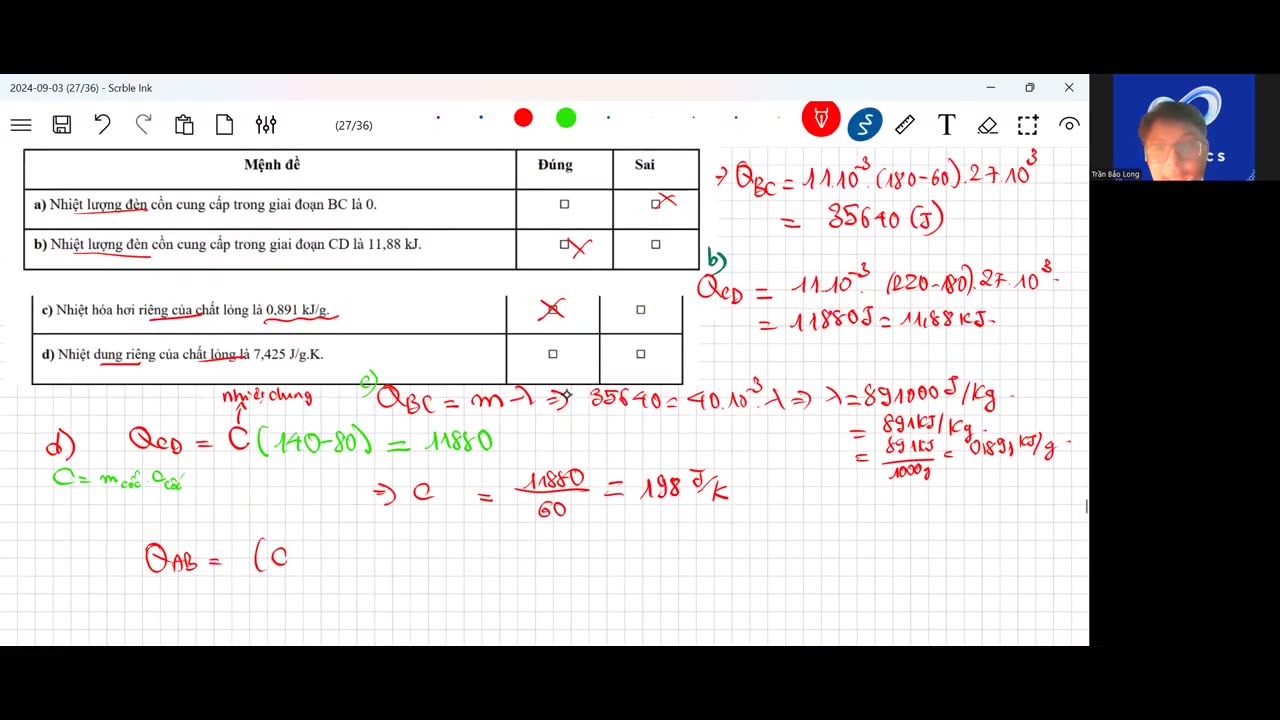 2024-09-03 (27/36) - Scrble Ink
(27/36)
Trần Bảo Long
cs
Mệnh đề Đúng Sai
a) Nhiệt lượng đèn cồn cung cấp trong giai đoạn BC là 0.
b) Nhiệt lượng đèn cồn cung cấp trong giai đoạn CD là 11,88 kJ.
c) Nhiệt hóa hơi riêng của chất lỏng là 0,891 kJ/g.
d) Nhiệt dung riêng của chất lỏng là 7,425 J/g.K.
=> Q_BC = 11.10^-3.(180-60).27.10^3
= 35640 (J)
b)
Q_CD = 11.10^-3. (220-180).27.10^3.
= 11880J = 11,88 KJ.
c) Q_BC = m.λ => 35640 = 40.10^-3.λ => λ = 891000 J/Kg.
= 891KJ/Kg.
= 891KJ/1000g = 0,891 KJ/g.
nhiệt dung
d) Q_CD = C(140-80) = 11880
C = m_cốc.C_cốc
=> C = 11880/60 = 198 J/K
Q_AB = (C